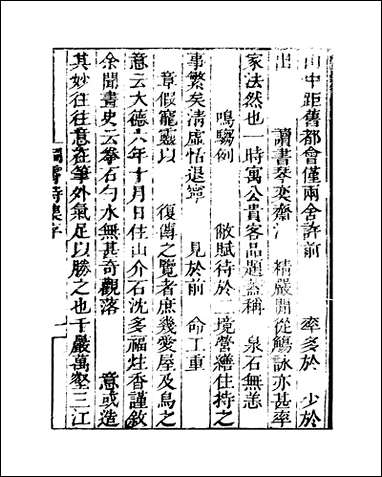 山中距舊都會僅兩舍許前 率多於 少於
出 讀書琴奕齋 精嚴開從觴詠亦甚率
家法然也一時寓公貴客品題益稱 泉石無恙
鳴騶例 敝賦待於二境營繕住持之
事繁矣清虛恬退寧 見於前 命工重
章假寵靈以 復傳之覽者庶幾愛屋及烏之
意云大德六年十月日住山介石沈多福炷香謹敘
余聞畫史云拳石勺水無甚奇觀落 意或造
其妙往往意在筆外氣足以勝之也千巖萬壑三江
洞霄詩集序